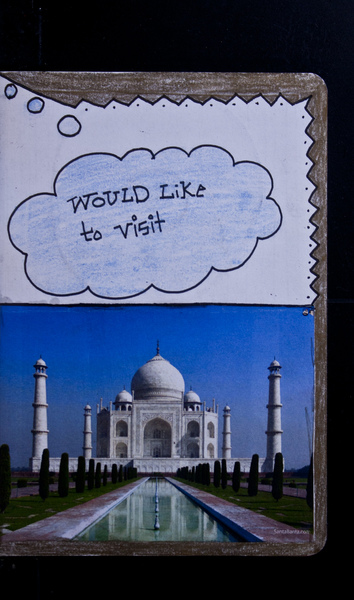 WOULD Like
to visit